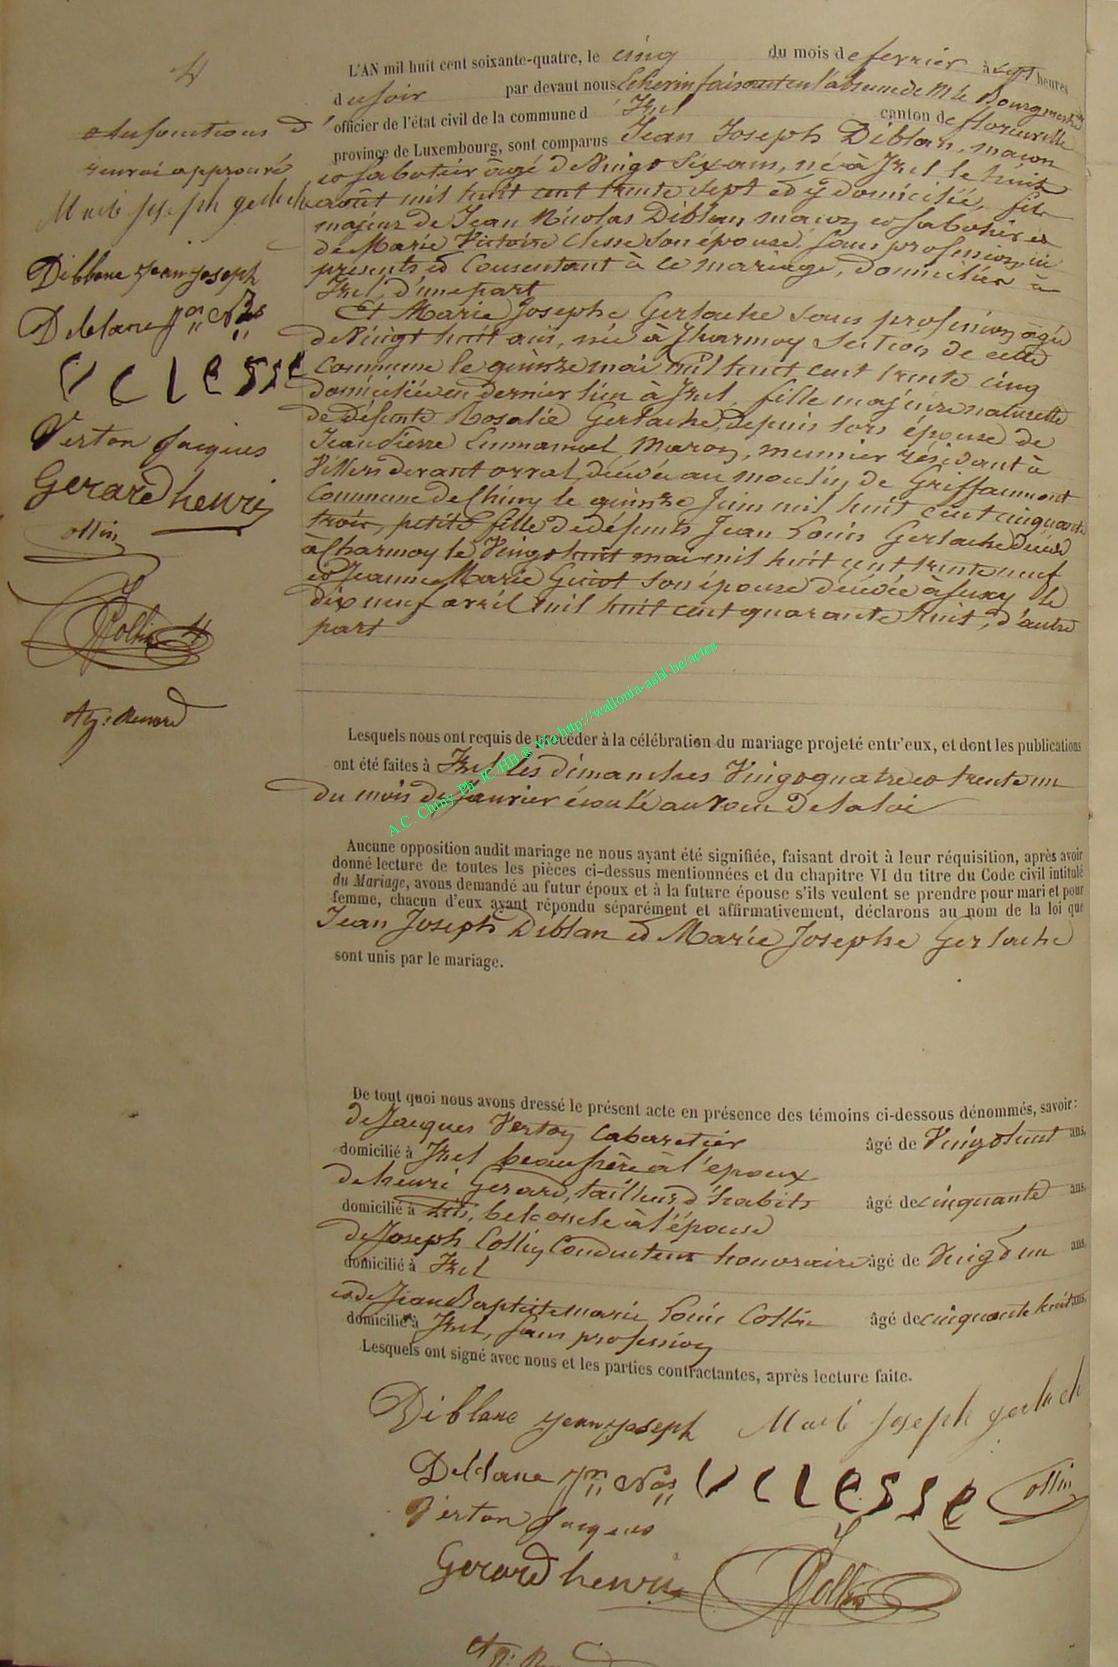 L'AN mil huit cent soixante-quatre, le cinq du mois de fevrier à sept heures
du soir par devant nous Echevin faisant en l'absence de Mr le Bourgmestre
officier de l'état civil de la commune d'Izel canton de florenville
province de Luxembourg, sont comparus Jean Joseph Diblan, maçon
et sabotier âgé de Vingt Six ans, né à Izel le huit
août mil huit cent trente sept et y domicilié, fils
majeur de Jean Nicolas Diblan maçon et sabotier et
de Marie Victoire Clesse son épouse, sans profession, ici
presents et Consentant à ce mariage, domiciliés à
Izel, d'une part
Et Marie Josephe Gerlache sans profession agée
de Vingt huit ans, née à Jharmoy Section de cette
Commune le quinze mai mil huit cent trente cinq
domiciliée en dernier lieu à Izel, fille majeure naturelle
de defunte Rosalie Gerlache, Depuis lors épouse de
Jean Pierre Emmanuel Maron, meunier résidant à
Villers devant orval, décédée au moulin de Griffaumont
Commune de Chiny le quinze Juin mil huit cent cinquante
trois, petite fille de defunts Jean Louis Gerlache décédé
à Charmoy le Vingt huit mai mil huit cent trente neuf
et Jeanne Marie Guiot son épouse décédée à Suxy le
dix neuf avril mil huit cent quarante huit, d'autre
part
fonctions d'
approuvé
Marie Joseph gerlach
Diblane jean joseph
Deblane Jn Nas
V C L E S S E
Verton Jacques
Gerard henri
Collin
Collin
Renard
Lesquels nous ont requis de procéder à la célébration du mariage projeté entr'eux, et dont les publications
ont été faites à Izel les dimanches Vingt quatre et trente un
du mois de Janvier écoulé au vœu de la loi
A.C. Chiny Ph JC HB ® Via http://wallonia-asbl.be/actes
Aucune opposition audit mariage ne nous ayant été signifiée, faisant droit à leur réquisition, après avoir
donné lecture de toutes les pièces ci-dessus mentionnées et du chapitre VI du titre du Code civil intitulé
du Mariage, avons demandé au futur époux et à la future épouse s'ils veulent se prendre pour mari et pour
femme, chacun d'eux ayant répondu séparément et affirmativement, déclarons au nom de la loi que
Jean Joseph Diblan et Marie Josephe Gerlache
sont unis par le mariage.
De tout quoi nous avons dressé le présent acte en présence des témoins ci-dessous dénommés, savoir:
de Jacques Verton Cabaretier âgé de Vingt huit ans,
domicilié à Izel beau frère à l'epoux
de henri Gerard, tailleur d'habits âgé de cinquante ans,
domicilié à bel oncle à l'épouse
de Joseph Collin Conducteur honoraire âgé de Vingt un ans,
domicilié à Izel
et de Jean Baptiste marie Louis Collin âgé de cinquante huit ans,
domicilié à Izel, sans profession
Lesquels ont signé avec nous et les parties contractantes, après lecture faite.
Diblane jean joseph Marie Joseph gerlach
Deblane Jn Nas V C L E S S E Collin
Verton Jacques
Gerard henri Collin